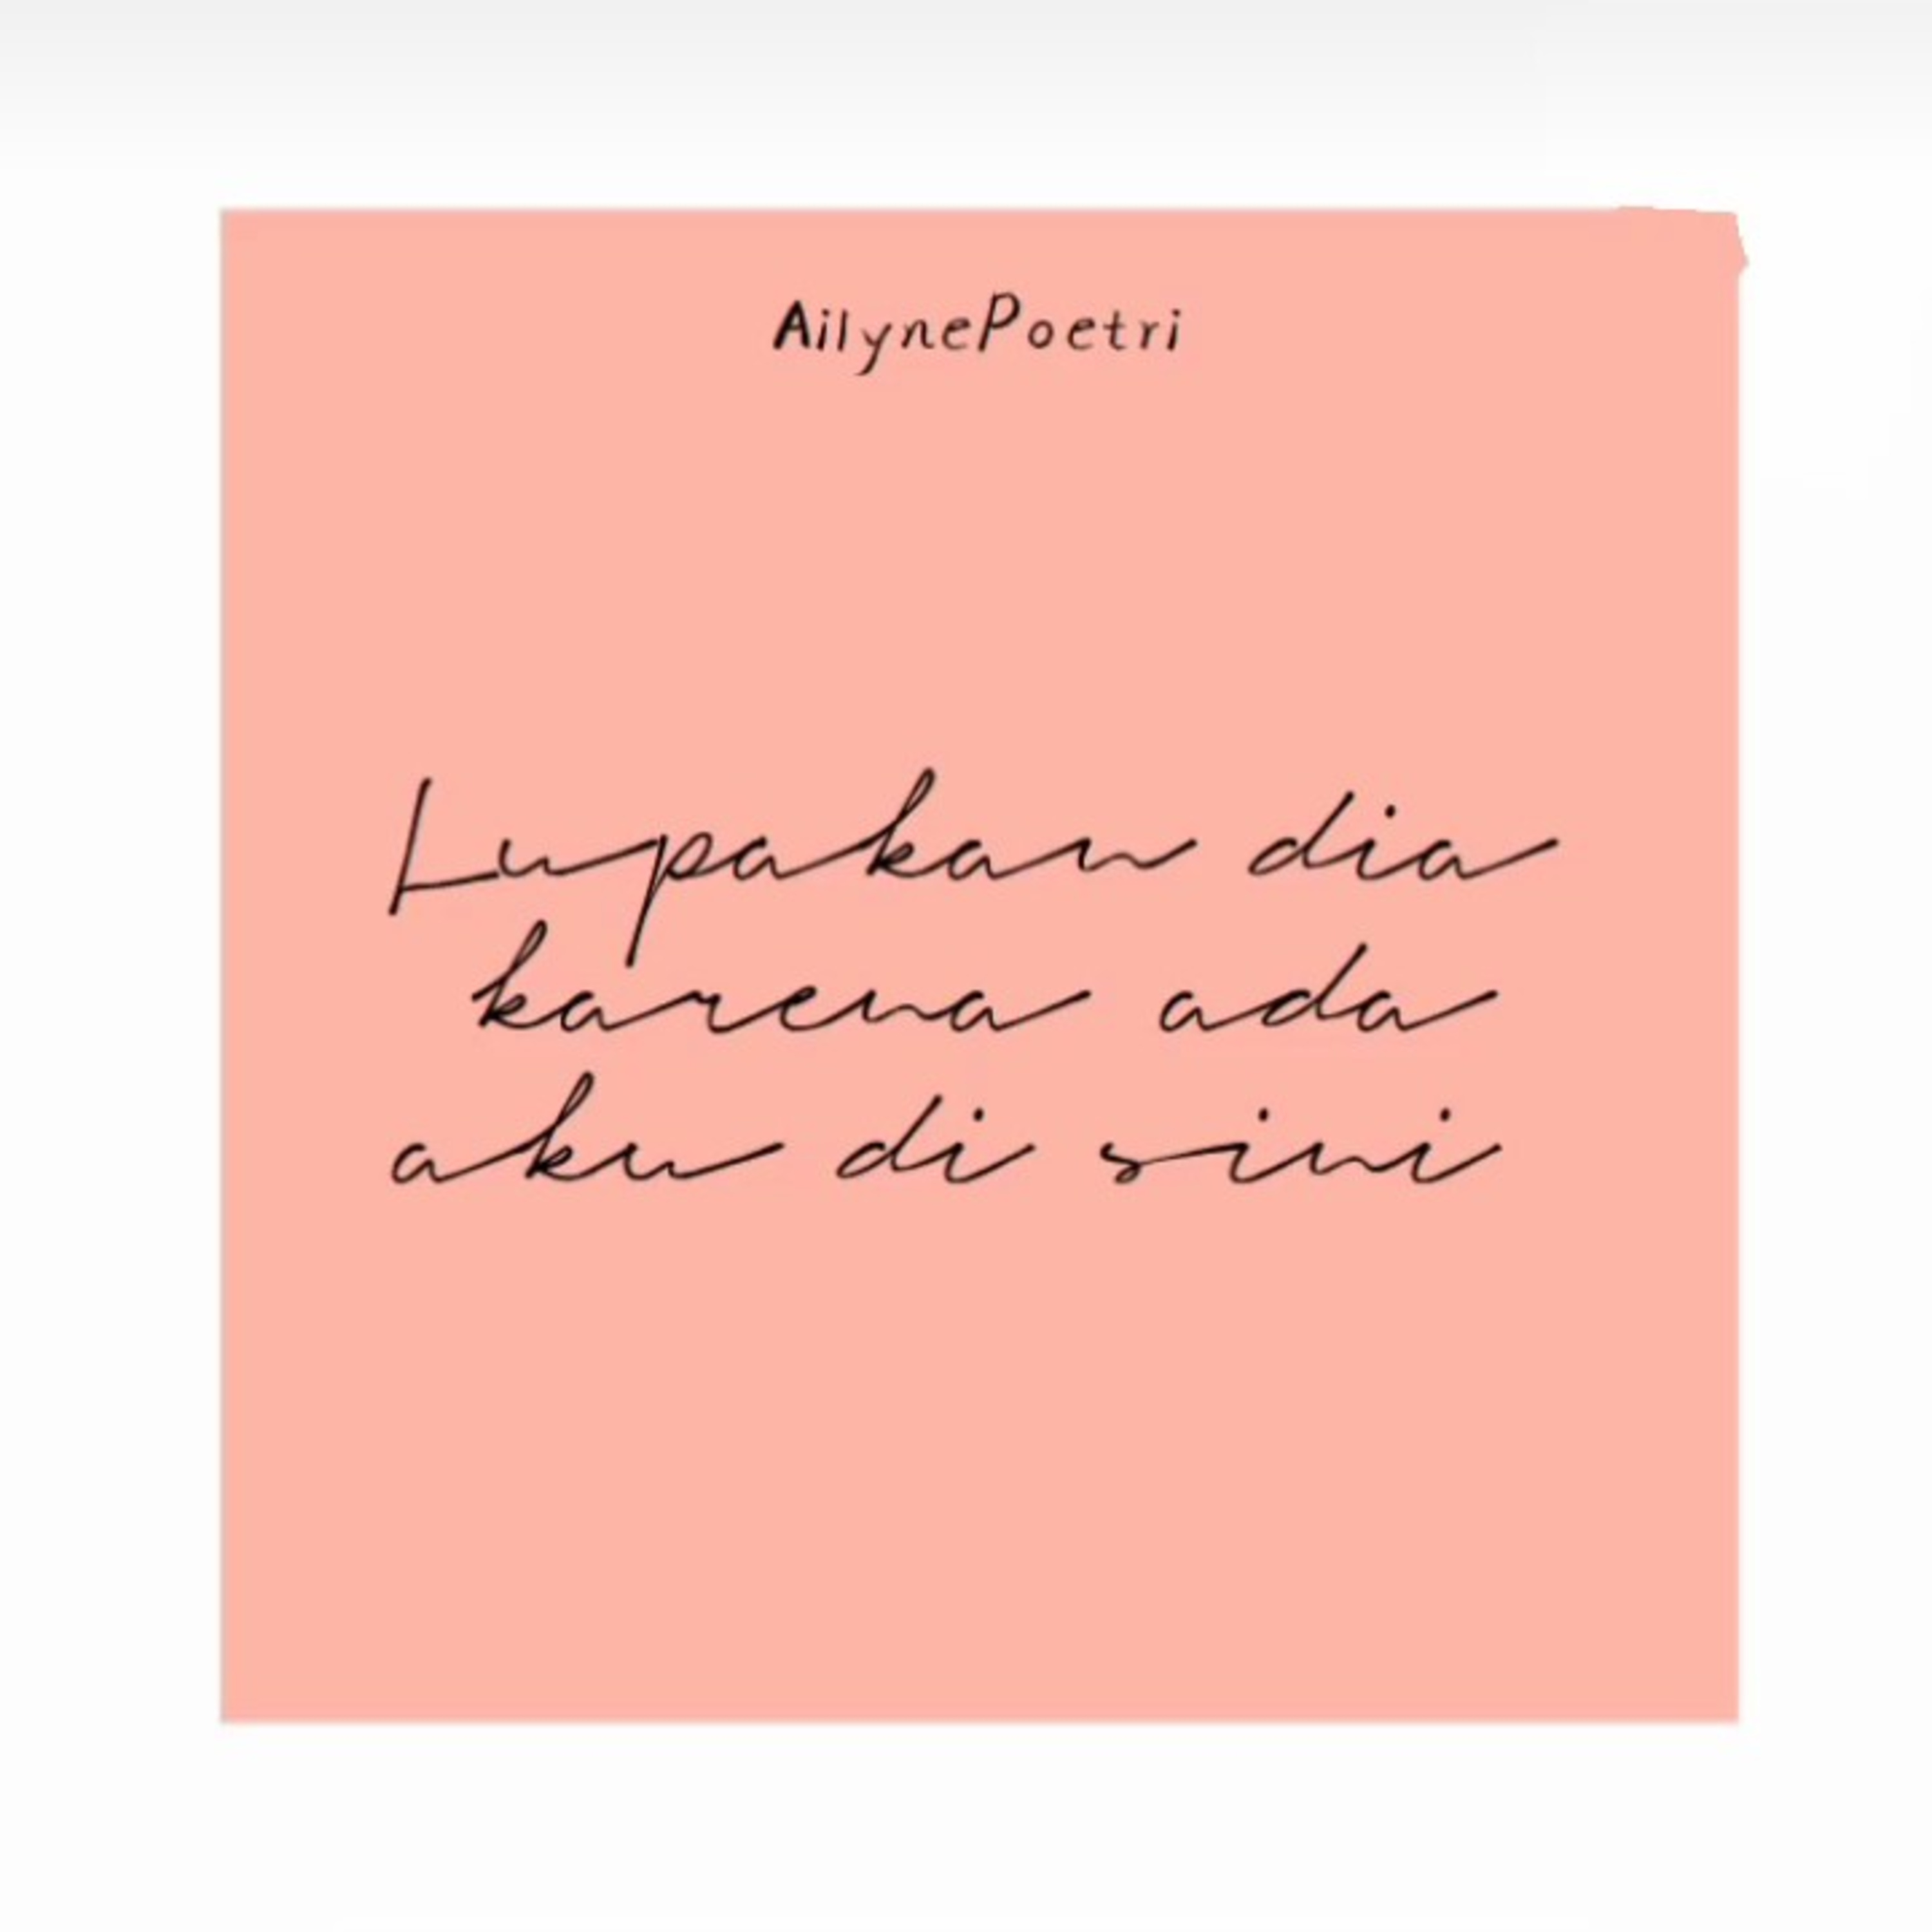 AilynePoetri
Lupakan dia
karena ada
aku di sini